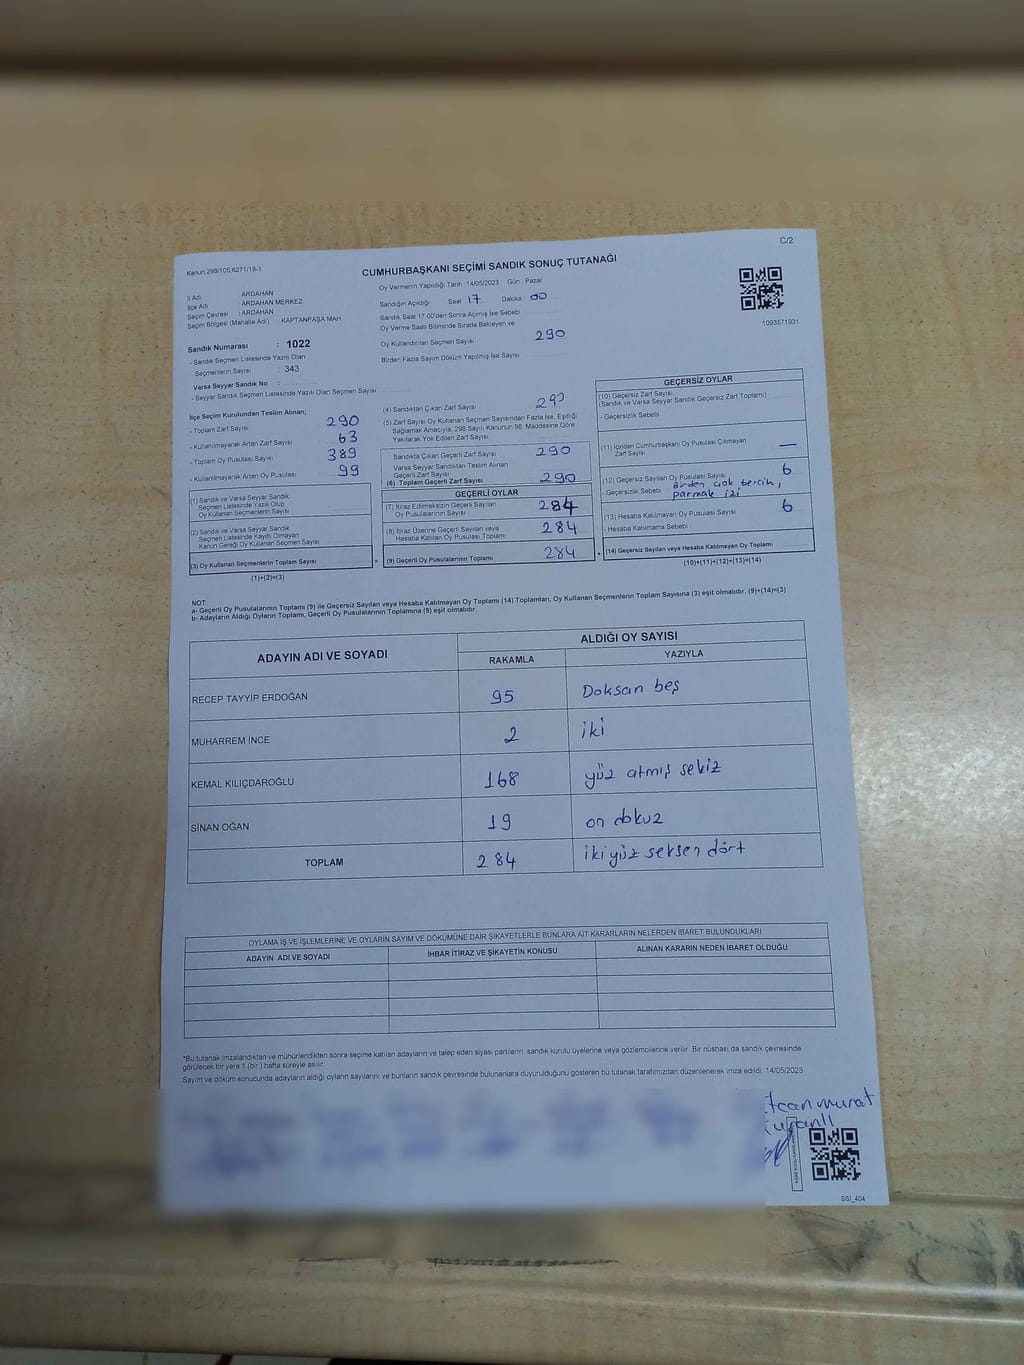 C/2
Kanun:298/105;6271/18-1
CUMHURBAŞKANI SEÇİMİ SANDIK SONUÇ TUTANAĞI
İl Adı : ARDAHAN
İlçe Adı : ARDAHAN MERKEZ
Seçim Çevresi : ARDAHAN
Seçim Bölgesi (Mahalle Adı) : KAPTANPAŞA MAH.
Sandık Numarası : 1022
- Sandık Seçmen Listesinde Yazılı Olan
Seçmenlerin Sayısı : 343
Varsa Seyyar Sandık No :
- Seyyar Sandık Seçmen Listesinde Yazılı Olan Seçmen Sayısı
Oy Vermenin Yapıldığı Tarih :14/05/2023 Gün : Pazar
Sandığın Açıldığı Saat 17 Dakika 00
Sandık Saat 17:00'den Sonra Açılmış İse Sebebi
Oy Verme Saati Bitiminde Sırada Bekleyen ve
Oy Kullandırılan Seçmen Sayısı 290
Birden Fazla Sayım Döküm Yapılmış İse Sayısı
1093571931
İlçe Seçim Kurulundan Teslim Alınan;
- Toplam Zarf Sayısı 290
- Kullanılmayarak Artan Zarf Sayısı 63
- Toplam Oy Pusulası Sayısı 389
- Kullanılmayarak Artan Oy Pusulası 99
(1) Sandık ve Varsa Seyyar Sandık
Seçmen Listesinde Yazılı Olup
Oy Kullanan Seçmenlerin Sayısı
(2) Sandık ve Varsa Seyyar Sandık
Seçmen Listesinde Kayıtlı Olmayan
Kanun Gereği Oy Kullanan Seçmen Sayısı
(3) Oy Kullanan Seçmenlerin Toplam Sayısı
(1)+(2)=(3)
=
(4) Sandıktan Çıkan Zarf Sayısı
(5) Zarf Sayısı Oy Kullanan Seçmen Sayısından Fazla İse, Eşitliği
Sağlamak Amacıyla, 298 Sayılı Kanunun 98. Maddesine Göre
Yakılarak Yok Edilen Zarf Sayısı
Sandıkta Çıkan Geçerli Zarf Sayısı 290
Varsa Seyyar Sandıktan Teslim Alınan
Geçerli Zarf Sayısı
(6) Toplam Geçerli Zarf Sayısı 290
GEÇERLİ OYLAR
(7) İtiraz Edilmeksizin Geçerli Sayılan
Oy Pusulalarının Sayısı 284
(8) İtiraz Üzerine Geçerli Sayılan veya
Hesaba Katılan Oy Pusulası Toplamı 284
(9) Geçerli Oy Pusulalarının Toplamı 284
+
GEÇERSİZ OYLAR
(10) Geçersiz Zarf Sayısı
(Sandık ve Varsa Seyyar Sandık Geçersiz Zarf Toplamı)
- Geçersizlik Sebebi
(11) İçinden Cumhurbaşkanı Oy Pusulası Çıkmayan
Zarf Sayısı —
(12) Geçersiz Sayılan Oy Pusulası Sayısı 6
- Geçersizlik Sebebi Birden çok tercih,
parmak izi
(13) Hesaba Katılmayan Oy Pusulası Sayısı 6
- Hesaba Katılmama Sebebi
(14) Geçersiz Sayılan veya Hesaba Katılmayan Oy Toplamı
(10)+(11)+(12)+(13)=(14)
NOT:
a- Geçerli Oy Pusulalarının Toplamı (9) ile Geçersiz Sayılan veya Hesaba Katılmayan Oy Toplamı (14) Toplamları, Oy Kullanan Seçmenlerin Toplam Sayısına (3) eşit olmalıdır. (9)+(14)=(3)
b- Adayların Aldığı Oyların Toplamı, Geçerli Oy Pusulalarının Toplamına (9) eşit olmalıdır.
ADAYIN ADI VE SOYADI ALDIĞI OY SAYISI
RAKAMLA YAZIYLA
RECEP TAYYİP ERDOĞAN 95 Doksan beş
MUHARREM İNCE 2 iki
KEMAL KILIÇDAROĞLU 168 yüz atmış sekiz
SİNAN OĞAN 19 on dokuz
TOPLAM 284 iki yüz seksen dört
OYLAMA İŞ VE İŞLEMLERİNE VE OYLARIN SAYIM VE DÖKÜMÜNE DAİR ŞİKAYETLERLE BUNLARA AİT KARARLARIN NELERDEN İBARET BULUNDUKLARI
ADAYIN ADI VE SOYADI İHBAR İTİRAZ VE ŞİKAYETİN KONUSU ALINAN KARARIN NEDEN İBARET OLDUĞU
*Bu tutanak imzalandıktan ve mühürlendikten sonra seçime katılan adayların ve talep eden siyasi partilerin sandık kurulu üyelerine veya gözlemcilerine verilir. Bir nüshası da sandık çevresinde
görülecek bir yere 1 (bir) hafta süreyle asılır.
Sayım ve döküm sonucunda adayların aldığı oyların sayılarını ve bunların sandık çevresinde bulunanlara duyurulduğunu gösteren bu tutanak tarafımızdan düzenlenerek imza edildi. 14/05/2023
murat
SSI_404